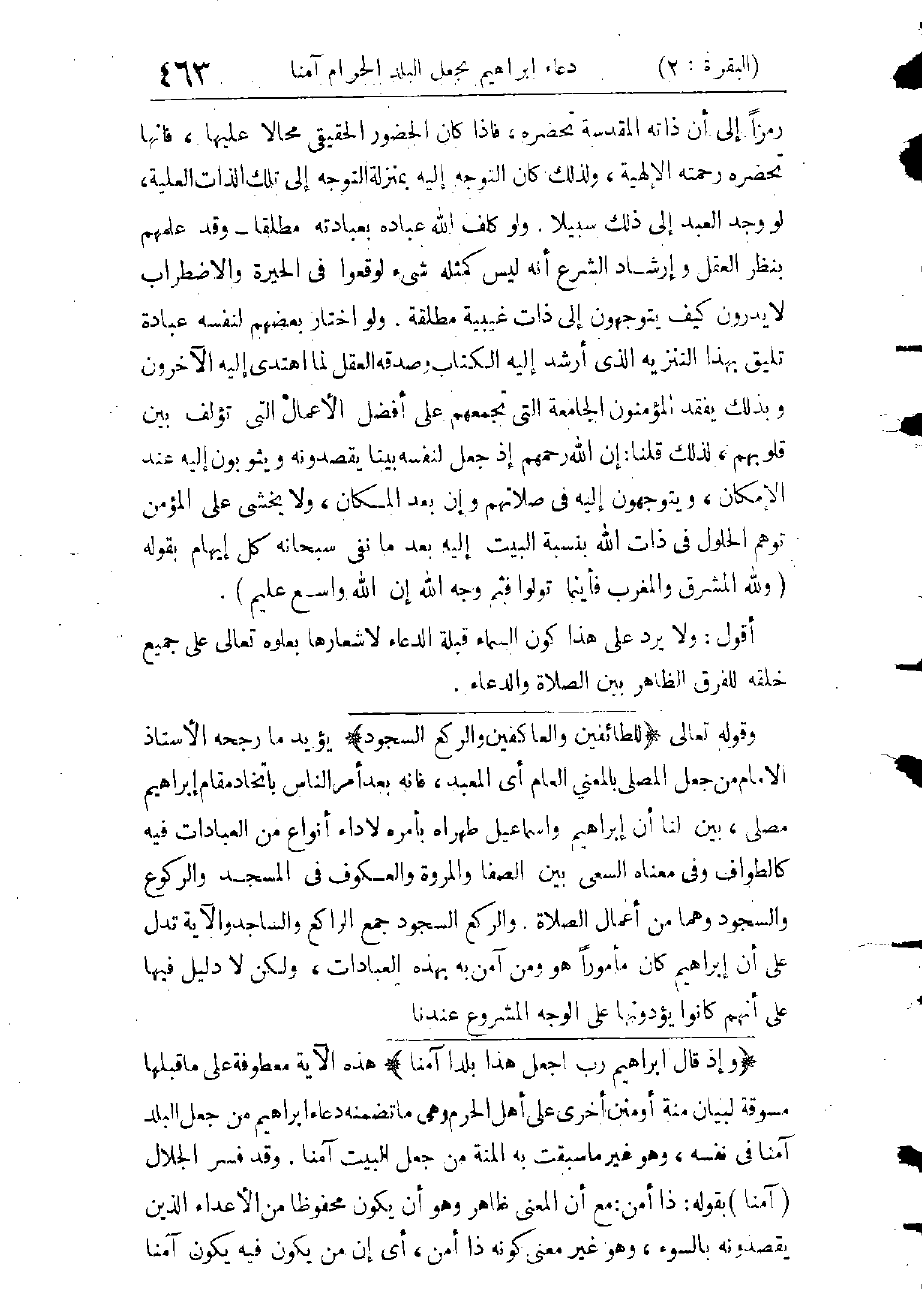 (البقرة : ٢) دعاء ابراهيم بجعل البلد الحرام آمنا ٤٦٣
رمزاً إلى أن ذاته المقدسة تحضره ، فاذا كان الحضور الحقيقي محالا عليها ، فانها
تحضره رحمته الإلهية ، ولذلك كان التوجه إليه بمنزلة التوجه إلى تلك الذات العلية،
لو وجد العبد إلى ذلك سبيلا . ولو كلف الله عباده بعبادته مطلقا ـ وقد علمهم
بنظر العقل وإرشاد الشرع أنه ليس كمثله شىء لوقعوا فى الحيرة والاضطراب
لا يدرون كيف يتوجهون إلى ذات غيبية مطلقة . ولو اختار بعضهم لنفسه عبادة
تليق بهذا التنزيه الذى أرشد إليه الكتاب وصدقه العقل لما اهتدى إليه الآخرون
وبذلك يفقد المؤمنون الجامعة التى تجمعهم على أفضل الأعمال التى تؤلف بين
قلوبهم ، لذلك قلنا: إن الله رحمهم إذ جعل لنفسه بيتا يقصدونه ويثوبون إليه عند
الإمكان ، ويتوجهون إليه فى صلاتهم وإن بعد المكان ، ولا يخشى على المؤمن
توهم الحلول فى ذات الله بنسبة البيت إليه بعد ما نفى سبحانه كل إيهام بقوله
( ولله المشرق والمغرب فأينما تولوا فثم وجه الله إن الله واسع عليم ) .
أقول : ولا يرد على هذا كون السماء قبلة الدعاء لاشعارها بعلوه تعالى على جميع
خلقه للفرق الظاهر بين الصلاة والدعاء .
وقوله تعالى ﴿للطائفين والعاكفين والركع السجود﴾ يؤيد ما رجحه الأستاذ
الامام من جعل المصلى بالمعني العام أى المعبد ، فانه بعد أمر الناس باتخاد مقام إبراهيم
مصلى ، بين لنا أن إبراهيم واسماعيل طهراه بأمره لاداء أنواع من العبادات فيه
كالطواف وفى معناه السعى بين الصفا والمروة والعكوف فى المسجد والركوع
والسجود وهما من أعمال الصلاة . والركع السجود جمع الراكع والساجد والآية تدل
على أن إبراهيم كان مأموراً هو ومن آمن به بهذه العبادات ، ولكن لا دليل فيها
على أنهم كانوا يؤدونها على الوجه المشروع عندنا
﴿وإذ قال ابراهيم رب اجعل هذا بلدا آمنا﴾ هذه الآية معطوفة على ماقبلها
مسوقة لبيان منة أومنن أخرى على أهل الحرم وهى ما تضمنه دعاء ابراهيم من جعل البلد
آمنا فى نفسه ، وهو غير ماسبقت به المنة من جعل البيت آمنا . وقد فسر الجلال
( آمنا ) بقوله: ذا أمن: مع أن المعنى ظاهر وهو أن يكون محفوظا من الأعداء الذين
يقصدونه بالسوء ، وهو غير معنى كونه ذا أمن ، أى إن من يكون فيه يكون آمنا